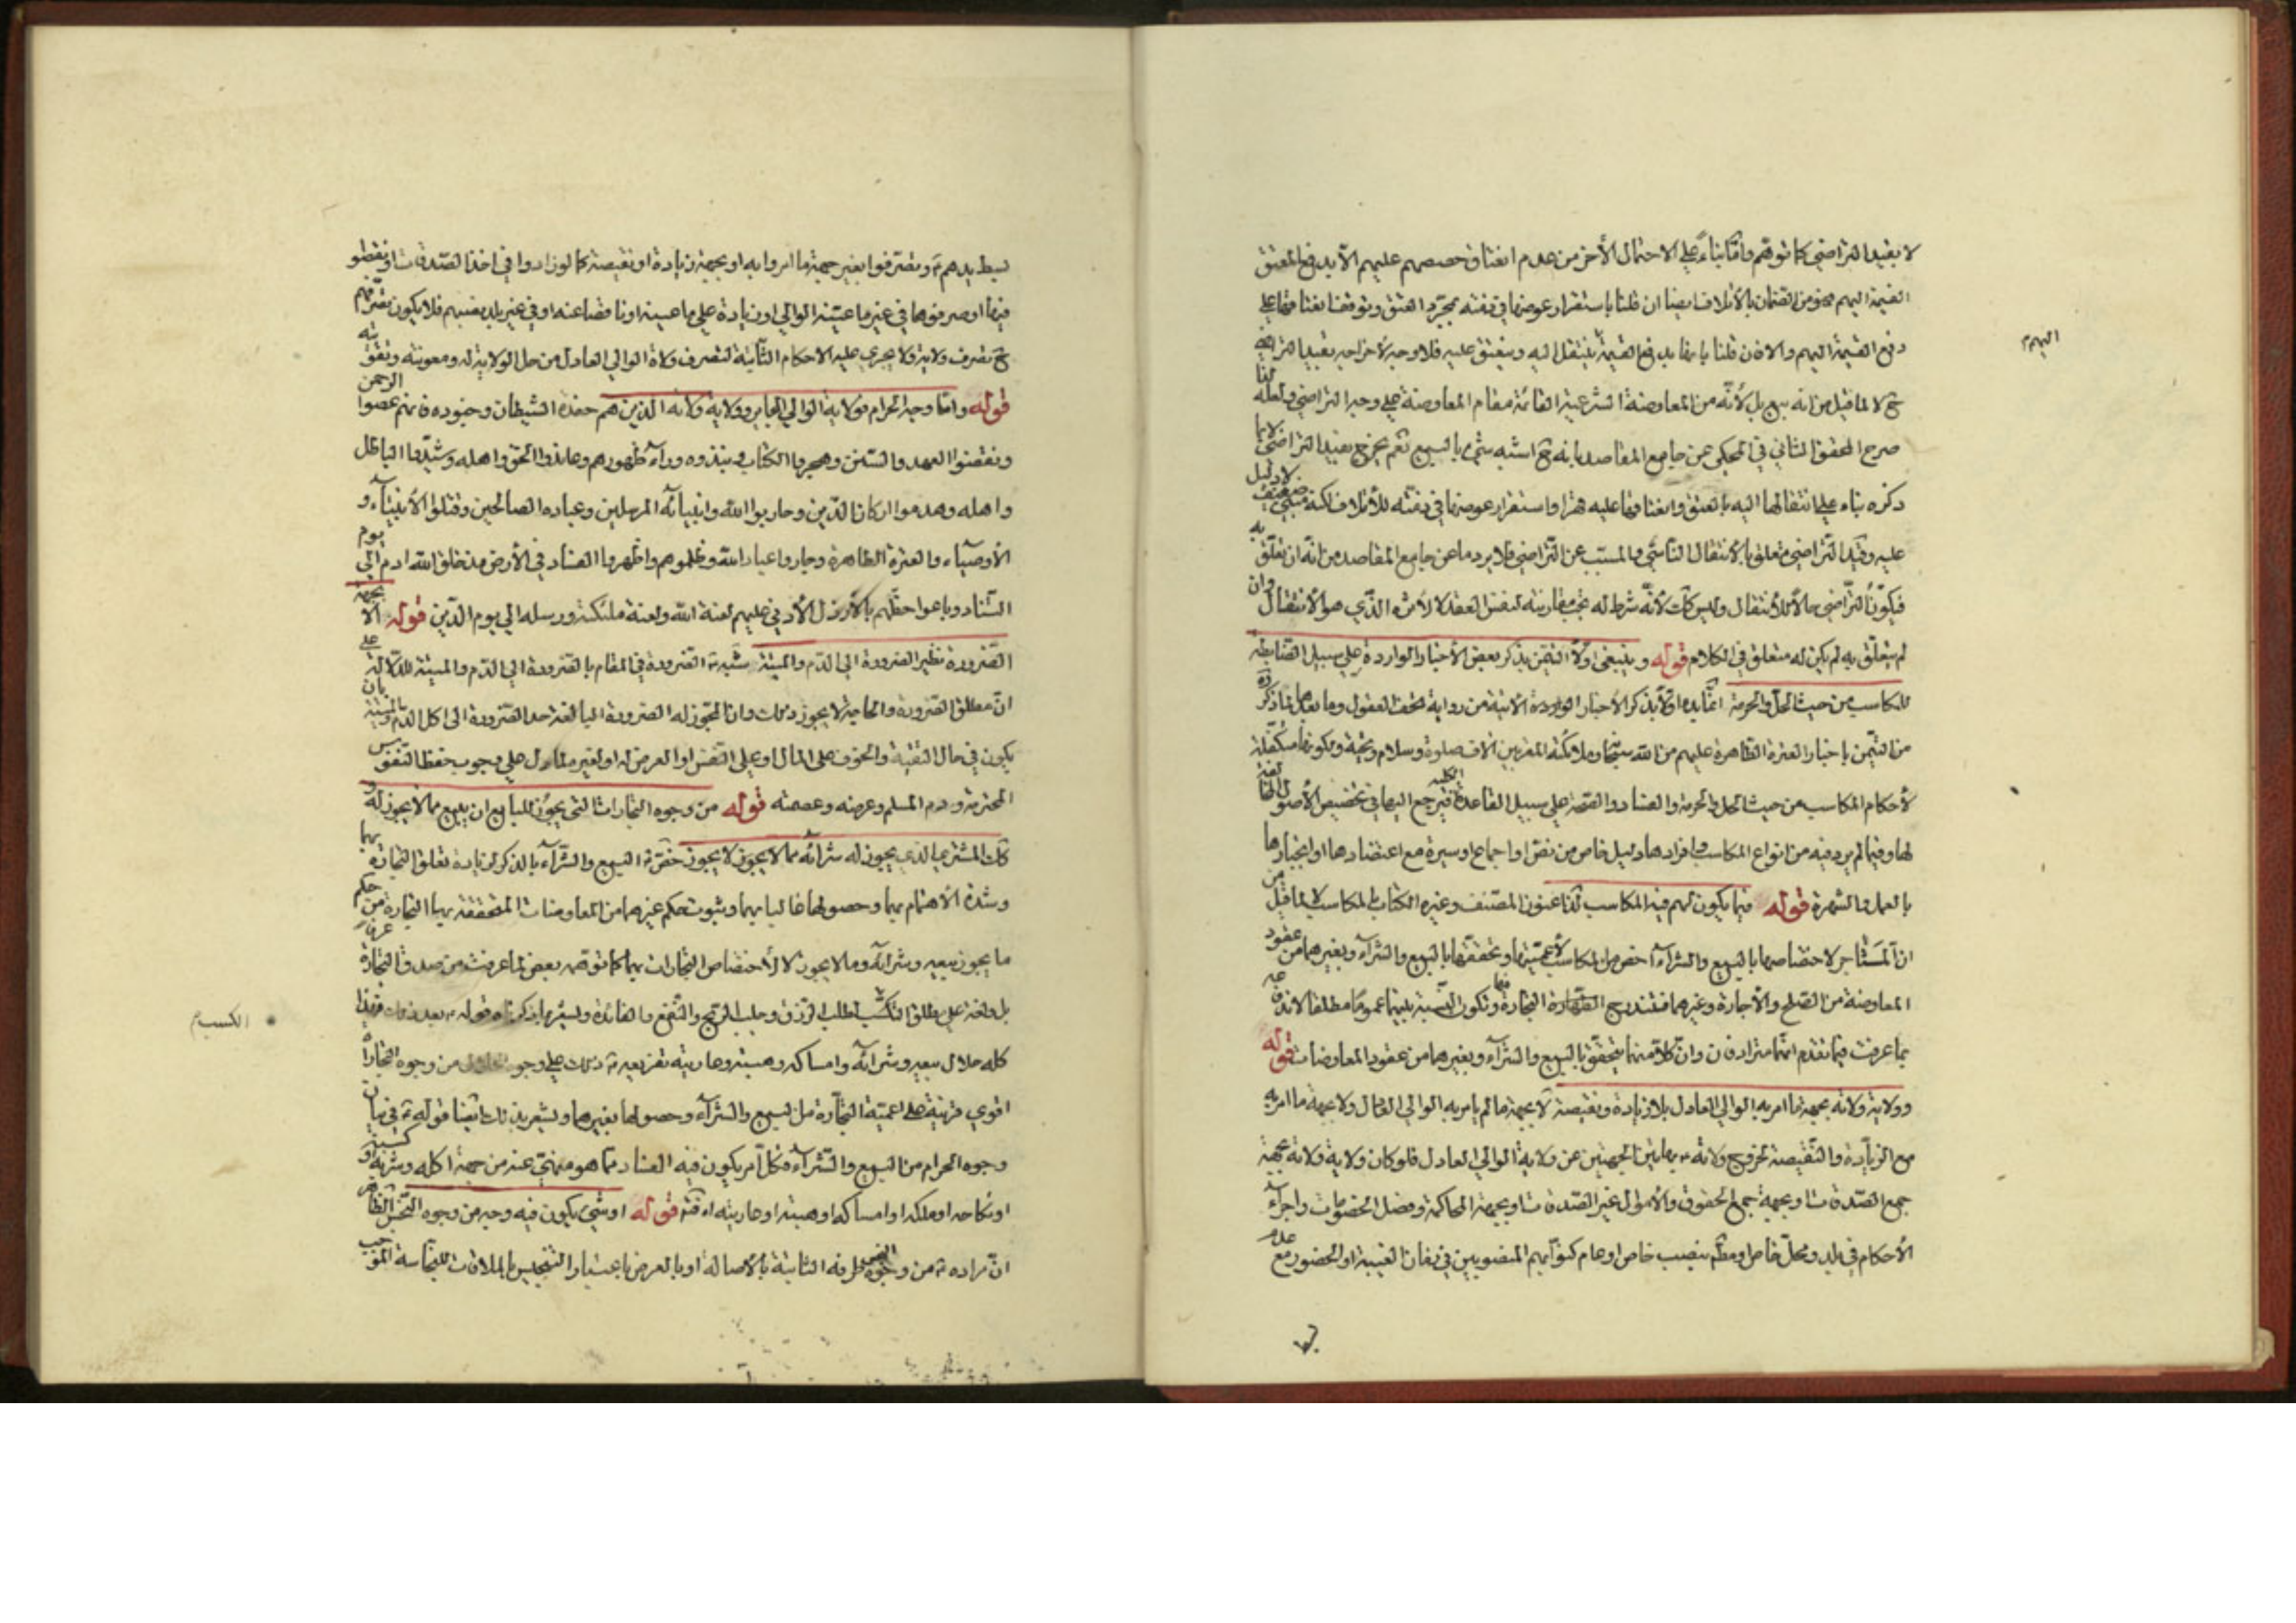 لا بقيد التراضي كما توهّم وامّا بناءً علي الاحتمال الأخر من عدم انعتاق حصصهم عليهم الّا بدفع المعتق
القيمة اليهم فهو من الضمان بالأتلاف ايضا ان قلنا باستقرار عوضها في ذمّته بمجرّد العتق وتوقف انعتاقها علي
دفع القيمة اليهم والا فان قلنا بانها بدفع القيمة ينتقل اليه وينعتق عليه فلا وجه لأخراجه بقيد التراضي
اليهم
ح لا لما قيل من انه بيع بل لأنّه من المعاوضة الشرعية القائمة مقام المعاوضة علي وجه التراضي ولعله لذا
صرح المحقق الثاني في المحكي عن جامع المقاصد بانه ح اشبه شيء بالبيع نعم يخرج بقيد التراضي لا بما
ذكره بناء علي انتقالها اليه بالعتق وانعتاقها عليه قهرا واستقرار عوضها في ذمّته للأتلاف لكنه ضعيف لا دليل
عليه وقيد التّراضي متعلق بالأنتقال الناشي والمسبّب عن التّراضي فلا يرد ما عن جامع المقاصد من انّه ان تعلّق به
فيكون التراضي حالا للأنتقال وليس كك لأنّه شرط له تجب مقارنته لنفس العقد لا لأثره الّذي هو الأنتقال وان
لم يتعلّق به لم يكن له متعلق في الكلام قوله وينبغي اولا التيمّن بذكر بعض الأخبار الواردة علي سبيل الضابطة
للمكاسب من حيث الحل والحرمة انّما بدء اوّلا بذكر الأخبار الواردة الأتية من رواية تحف العقول وما بعدها
من التيمّن باخبار العترة الطّاهرة عليهم من الله سبحانه وملائكته المقربين الاف صلوة وسلام وتحية وكونها متكفّلة
لأحكام المكاسب من حيث الحل والحرمة والفساد والصّحة علي سبيل القاعدة الكلية فيرجع اليها في تخصيص الأصول
لها وفيما لم يرد فيه من انواع المكاسب وافرادها دليل خاص من نصّ او اجماع او سيرة مع اعتضادها او انجبارها
بالعمل والشهرة قوله فيما يكون لهم فيه المكاسب لذا عنون المصنف وغيره الكتاب بالمكاسب لا لما قيل من
انّ المتاجر لاختصاصها بالبيع والشراء اخص من المكاسب لأعمّيتها وتحققها بالبيع والشراء وبغيرهما من عقود
المعاوضة من الصّلح والأجارة وغيرهما فتندرج فيها التجارة وتكون النّسبة بينهما عموما مطلقا لأنّه
مما عرفت فيما تقدم انّهما مترادفان وانّ كلّا منهما يتحقّق بالبيع والشراء وبغيرهما من عقود المعاوضات قوله
وولاية ولاته بجهة ما امر به الوالي العادل بلا زيادة ونقيصة لا بجهة ما لم يامر به الوالي العادل ولا بجهة ما امر به
مع الزيادة والنّقيصة لخروج ولاته بهاتين الجهتين عن ولاية الوالي العادل فلو كان ولاية ولاته بجهة
جمع الصّدقات او بجهة جمع الحقوق والأموال غير الصّدقات او بجهة المحاكمة وفصل الخصومات واجراء
الأحكام في بلد ومحلّ خاص او معظّم بنصب خاص او عام كنوّابهم المنصوبين في زمان الغيبة او الحضور مع عدم
بسط يدهم وتصرّفوا بغير جهة ما امروا به او بجهة زيادة او نقيصة كما لو زادوا في اخذ الصّدقات او نقصوا
فيها او صرفوها في غير ما عيّنه الوالي او زيادة علي ما عيّنه او ناقصا عنه او في غير بلد نصبهم فلا يكون تصرّفهم
ح تصرف ولاية ولا يجري عليه الاحكام الثّابتة لتصرف ولاة الوالي العادل من حل الولاية له ومعونته وتقويته
قوله وامّا وجه الحرام فولاية الوالي الجابر وولاية ولاته الّذين هم حفدة الشّيطان وجنوده فانهم عصوا الرحمن
ونقضوا العهد والسّنن وهجروا الكتاب ونبذوه وراء ظهورهم وعاندوا الحقّ واهله وشيّدوا الباطل
واهله وهدموا اركان الدّين وحاربوا الله وانبيائه المرسلين وعباده الصالحين وقتلوا الأنبياء و
الأوصياء والعترة الطاهرة وجاروا عباد الله وظلموهم واظهروا الفساد في الأرض منذ خلق الله ادم الي يوم
التّناد وباعوا حظّهم بالأرذل الأدني عليهم لعنة الله ولعنة ملئكته ورسله الي يوم الدّين قوله الا بجهة
الضّرورة نظير الضرورة الي الدّم والميتة شبّه الضّرورة في المقام بالضّرورة الي الدّم والميتة للدّلالة علي
انّ مطلق الضّرورة والحاجة لا يجوز ذلك وان المجوّز له الضرورة البالغة حد الضّرورة الي اكل الدّم والميتة بان
يكون في حال التقية والخوف علي المال او علي النّفس او العرض له او لغيره لما دل علي وجوب حفظ النّفوس
المحترمة ودم المسلم وعرضه وعصمته قوله من وجوه التجارات التي يجوز للبايع ان يبيع مما لا يجوز له و
كك المشتري الذي يجوز له شرائه مما لا يجوز لا يجوز خصّ البيع والشّراء بالذكر لزيادة تعلق التجارة بهما
وشدة الأهتمام بهما وحصولها غالبا بهما وثبوت حكم غيرهما من المعاوضات المتحققة بها التجارة من حكم
ما يجوز بيعه وشرائه وما لا يجوز لا لأختصاص التجارات بهما كما توهمه بعض لما عرفت من صدق التجارة
بل ولغة علي مطلق التكسّب لطلب الرّزق وجلب الرّبح والنّفع والفائدة ويشير بما ذكرناه قوله بعد ذلك فهذا
الكسب
كله حلال بيعه وشرائه وامساكه وهبته وعاريته تفريعه ذلك علي وجوه الحلال من وجوه التجارات
اقوي قرينة علي اعميّة التّجارة من البيع والشراء وحصولها بغيرهما ويشعر بذلك ايضا قوله في بيان
وجوه الحرام من البيع والشّراء فكل امر يكون فيه الفساد ممّا هو منهيّ عنه من جهة اكله وشربه او كسبه
او نكاحه او ملكه او امساكه او هبته او عاريته قوله او شيء يكون فيه وجه من وجوه النّجس الظّاهر
انّ مراده من وجوه النجس طرقه الثابتة بالأصالة او بالعرض باعتبار التّنجيس بالملاقات للنّجاسة الموجب